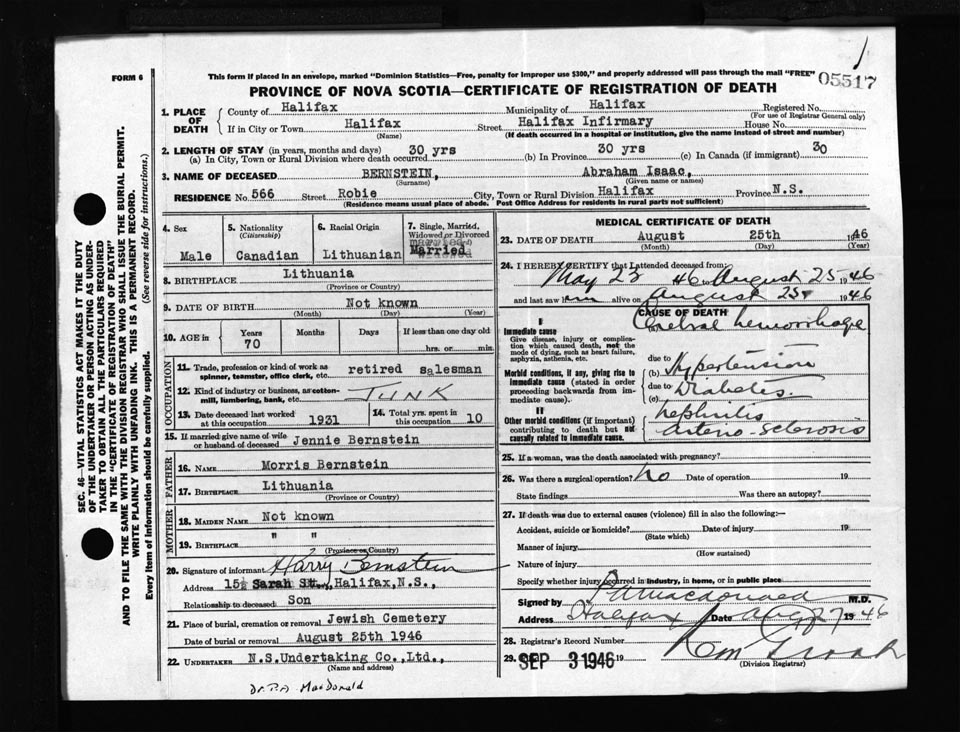 FORM 6
This form if placed in an envelope, marked "Dominion Statistics—Free, penalty for improper use $300," and properly addressed will pass through the mail "FREE"
05517
PROVINCE OF NOVA SCOTIA—CERTIFICATE OF REGISTRATION OF DEATH
1. PLACE OF DEATH
County of Halifax Municipality of Halifax Registered No.
(For use of Registrar General only)
If in City or Town Halifax Street Halifax Infirmary House No.
(Name) (If death occurred in a hospital or institution, give the name instead of street and number)
2. LENGTH OF STAY (in years, months and days)
(a) In City, Town or Rural Division where death occurred 30 yrs (b) In Province 30 yrs (c) In Canada (if immigrant) 30
3. NAME OF DECEASED BERNSTEIN, Abraham Isaac,
(Surname) (Given name or names)
RESIDENCE No. 566 Street Robie City, Town or Rural Division Halifax Province N.S.
(Residence means usual place of abode. Post Office Address for residents in rural parts not sufficient)
4. Sex Male
5. Nationality (Citizenship) Canadian
6. Racial Origin Lithuanian
7. Single, Married, Widowed or Divorced Married
8. BIRTHPLACE Lithuania
(Province or Country)
9. DATE OF BIRTH Not known
(Month) (Day) (Year)
10. AGE in Years 70 Months Days If less than one day old hrs. or min.
OCCUPATION
11. Trade, profession or kind of work as spinner, teamster, office clerk, etc. retired salesman
12. Kind of industry or business, as cotton-mill, lumbering, bank, etc. Junk
13. Date deceased last worked at this occupation 1931
14. Total yrs. spent in this occupation 10
15. If married give name of wife or husband of deceased Jennie Bernstein
FATHER
16. NAME Morris Bernstein
17. BIRTHPLACE Lithuania
(Province or Country)
MOTHER
18. MAIDEN NAME Not known
19. BIRTHPLACE " "
(Province or Country)
20. Signature of informant Harry Bernstein
Address 15½ Sarah St., Halifax, N.S.,
Relationship to deceased Son
21. Place of burial, cremation or removal Jewish Cemetery
Date of burial or removal August 25th 1946
22. UNDERTAKER N.S.Undertaking Co.,Ltd.,
(Name and address)
Dr. P.A. MacDonald
MEDICAL CERTIFICATE OF DEATH
23. DATE OF DEATH August 25th 1946
(Month) (Day) (Year)
24. I HEREBY CERTIFY that I attended deceased from:
May 23 46 to August 25 1946
and last saw him alive on August 25 1946
CAUSE OF DEATH
I
Immediate cause
Give disease, injury or complication which caused death, not the mode of dying, such as heart failure, asphyxia, asthenia, etc.
(a) Cerebral hemorrhage
due to
Morbid conditions, if any, giving rise to immediate cause (stated in order proceeding backwards from immediate cause).
(b) Hypertension
due to
Diabetes
II
Other morbid conditions (if important) contributing to death but not causally related to immediate cause.
nephritis
arterio-sclerosis
25. If a woman, was the death associated with pregnancy?
26. Was there a surgical operation? No Date of operation 19
State findings Was there an autopsy?
27. If death was due to external causes (violence) fill in also the following:—
Accident, suicide or homicide? Date of injury 19
(State which)
Manner of injury
(How sustained)
Nature of injury
Specify whether injury occurred in industry, in home, or in public place
Signed by P A Macdonald M.D.
Address Halifax Date Aug 27 1946
28. Registrar's Record Number
29. SEP 3 1946 19
(Division Registrar)
SEC. 46—VITAL STATISTICS ACT MAKES IT THE DUTY
OF THE UNDERTAKER OR PERSON ACTING AS UNDER-
TAKER TO OBTAIN ALL THE PARTICULARS REQUIRED
IN THE "CERTIFICATE OF REGISTRATION OF DEATH"
AND TO FILE THE SAME WITH THE DIVISION REGISTRAR WHO SHALL ISSUE THE BURIAL PERMIT.
WRITE PLAINLY WITH UNFADING INK. THIS IS A PERMANENT RECORD.
Every item of Information should be carefully supplied. (See reverse side for instructions.)